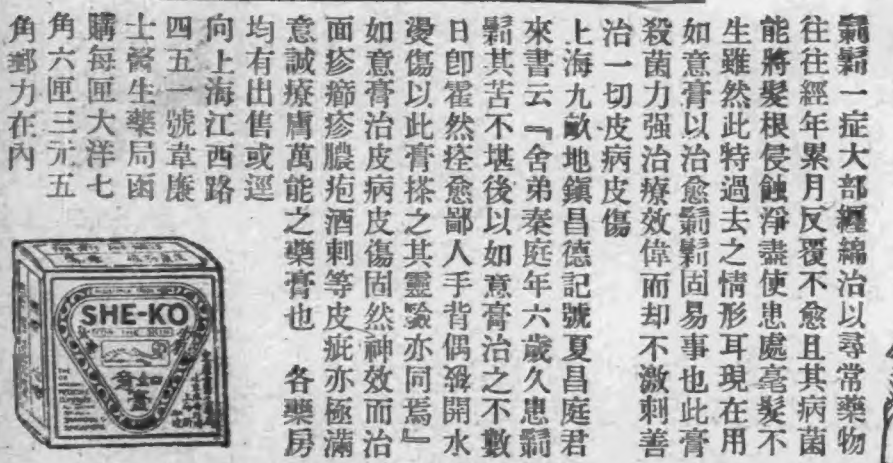 鬎鬁一症大部纏綿治以尋常藥物
往往經年累月反覆不愈且其病菌
能將髮根侵蝕淨盡使患處毫髮不
生雖然此特過去之情形耳現在用
如意膏以治愈鬎鬁固易事也此膏
殺菌力强治療效偉而却不激刺善
治一切皮病皮傷
上海九畝地鎮昌德記號夏昌庭君
來書云『舍弟秦庭年六歲久患鬎
鬁其苦不堪後以如意膏治之不數
日卽霍然痊愈鄙人手背偶發開水
燙傷以此膏搽之其靈驗亦同焉』
如意膏治皮病皮傷固然神效而治
面疹癤疹膿疱酒刺等皮疵亦極滿
意誠療膚萬能之藥膏也 各藥房
均有出售或逕
向上海江西路
四五一號韋廉
士醫生藥局函
購每匣大洋七
角六匣三元五
角郵力在內
SHE-KO
FOR THE SKIN
如意膏